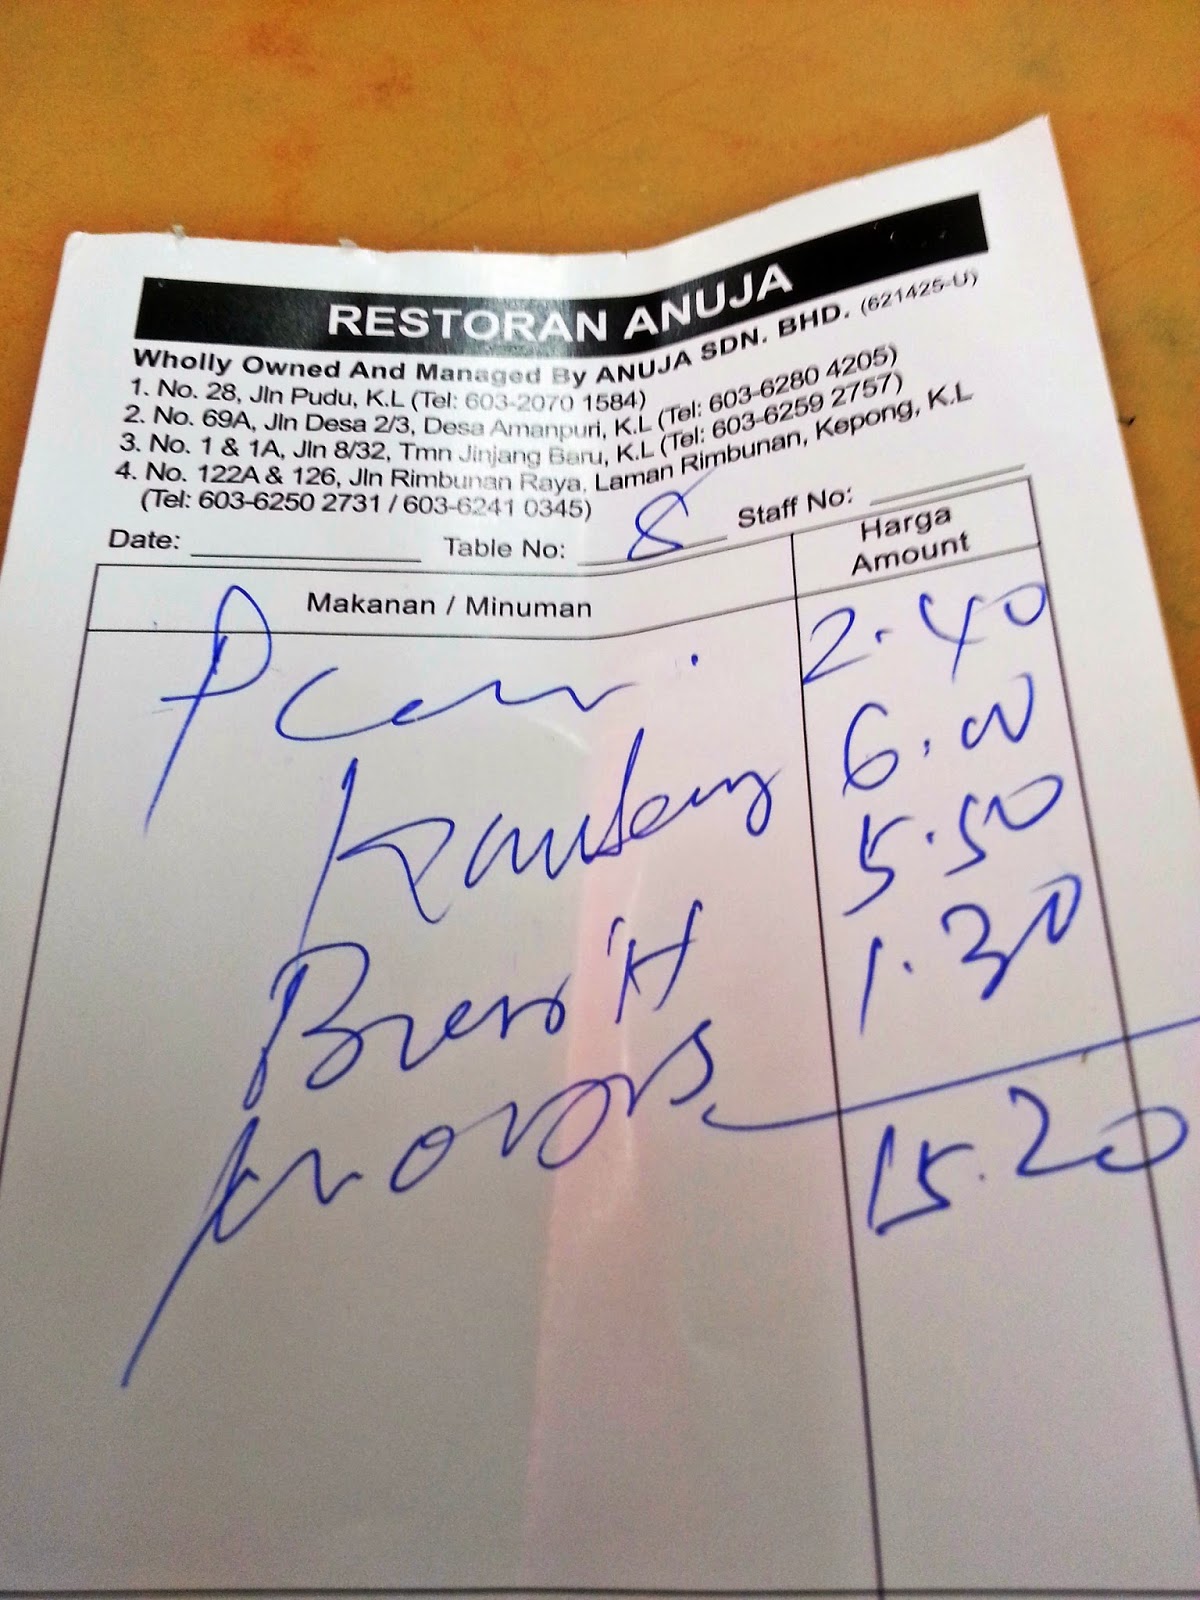 RESTORAN ANUJA
Wholly Owned And Managed By ANUJA SDN. BHD. (621425-U)
1. No. 28, Jln Pudu, K.L (Tel: 603-2070 1584)
2. No. 69A, Jln Desa 2/3, Desa Amanpuri, K.L (Tel: 603-6280 4205)
3. No. 1 & 1A, Jln 8/32, Tmn Jinjang Baru, K.L (Tel: 603-6259 2757)
4. No. 122A & 126, Jln Rimbunan Raya, Laman Rimbunan, Kepong, K.L
(Tel: 603-6250 2731 / 603-6241 0345)
Date: Table No: 8 Staff No:
Makanan / Minuman Harga Amount
2.40
Kambing 6.00
5.50
1.30
15.20